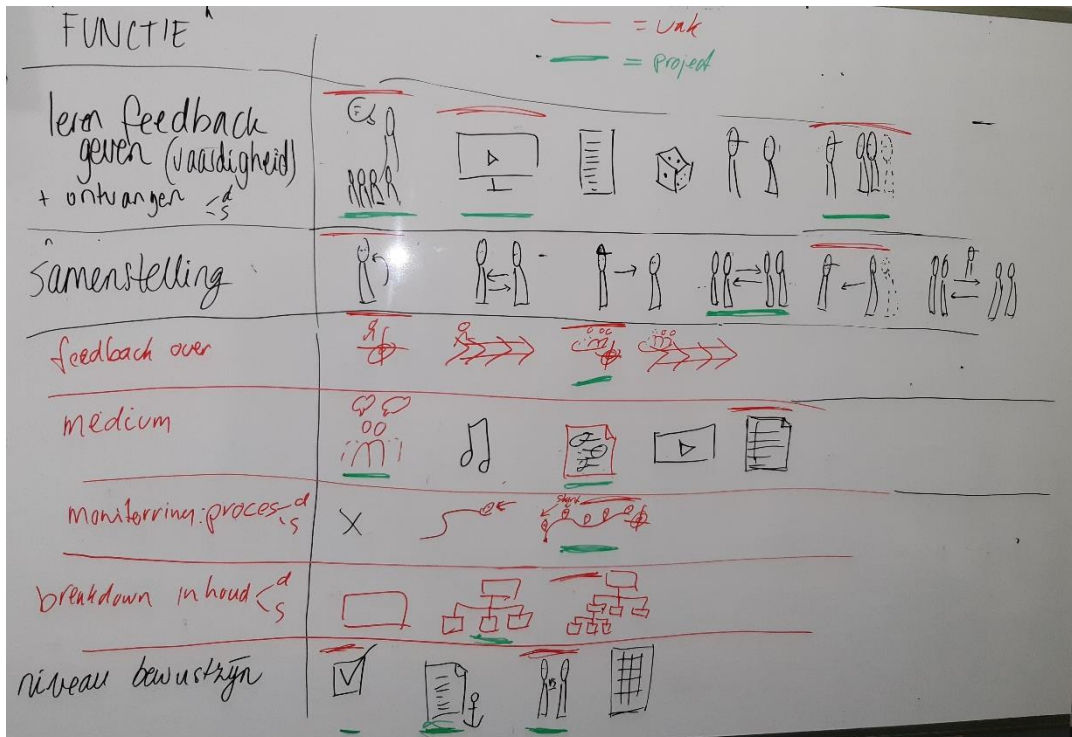 FUNCTIE
= vak
= project
leren feedback
geven (vaardigheid)
+ ontvangen < d s
samenstelling
feedback over
medium
monitoring: proces < d s
start
breakdown inhoud < d s
vs
niveau bewustzijn